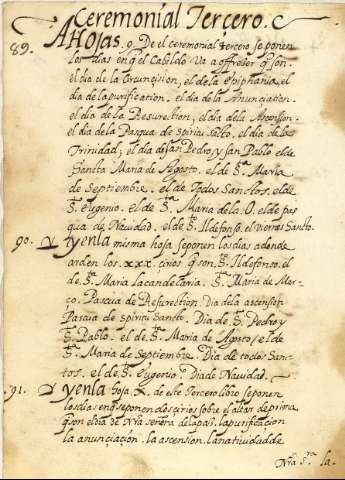 Ceremonial Tercero.
89. A Hojas. 9. De el ceremonial tercero se ponen
los dias en q el Cabildo va a offreser q son.
el dia de la Circuncision, el de la Epiphania, el
dia de la purification. el dia de la Anunciation.
el dia de la Resurection, el dia de la Ascension.
el dia de la Pascua de spiritu sancto. el dia de la
Trinidad, el dia de san Pedro y san Pablo. el de
Sancta Maria de Agosto. el de S.ª Maria
de Septiembre. el de todos Sanctos. el de
S. eugenio. el de S.ª Maria de la O. el de pas
qua de Navidad. el de S. Ildefonso. el viernes Sancto.
90. Y en la misma hoja se ponen los dias adonde
arden los .xxx. cirios q son. S. Ildefonso. el
de S.ª Maria la candelaria. S.ª Maria de Mar-
ço. Pascua de Resurection. Dia de la ascension
Pascua de spiritu sancto. Dia de S. Pedro y
S. Pablo. el de S.ª Maria de Agosto, el de
S.ª Maria de Septiembre. Dia de todos Sanc-
tos. el de S. Eugenio. Dia de Navidad.
91. Y en la hoja. X. de este Tercero libro se ponen
los dias en q se ponen dos cirios sobre el altar de prima
q son el dia de nrã señora de la paz. la purificacion
la anunciación. la ascension. la natividad de
Nrã S.ra la.